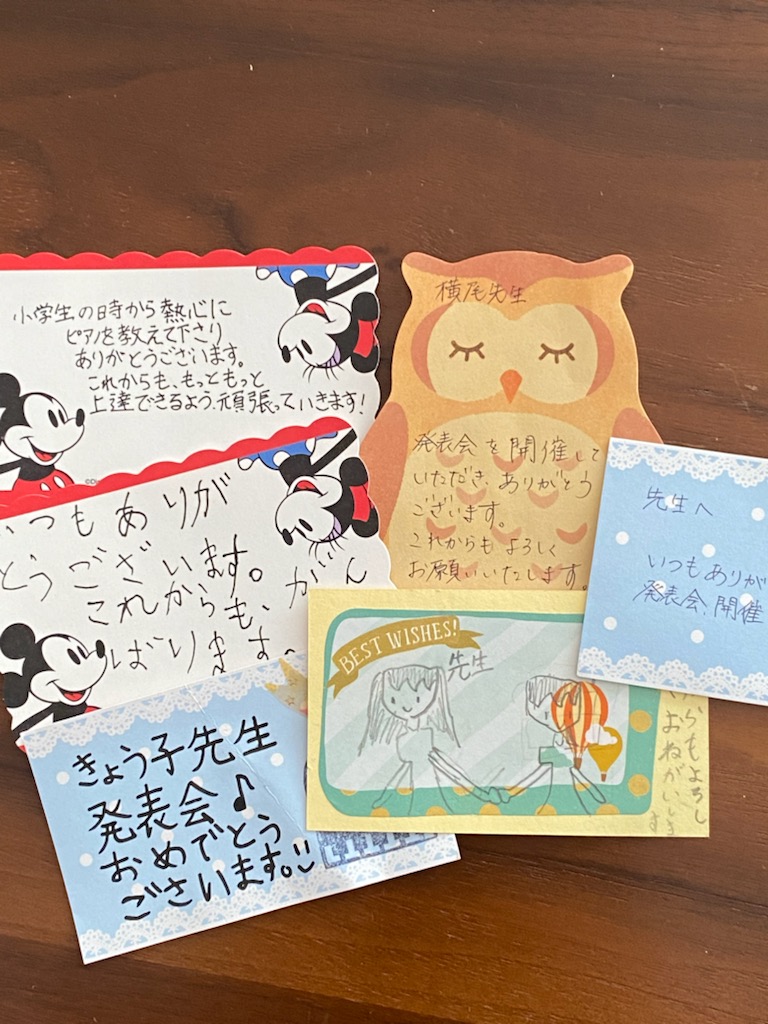 小学生の時から熱心に
ピアノを教えて下さり
ありがとうございます。
これからも、もっともっと
上達できるよう、頑張っていきます!
©Di
いつもありが
とうございます。
これからも、がん
ばります
横尾先生
発表会を開催して
いただき、ありがとう
ございます。
これからもよろしく
お願いいたします。
先生へ
いつもありが
発表会、開催
BEST WISHES!
先生
らもよろし
おねがいしま
きょう子先生
発表会♪
おめでとう
ございます。